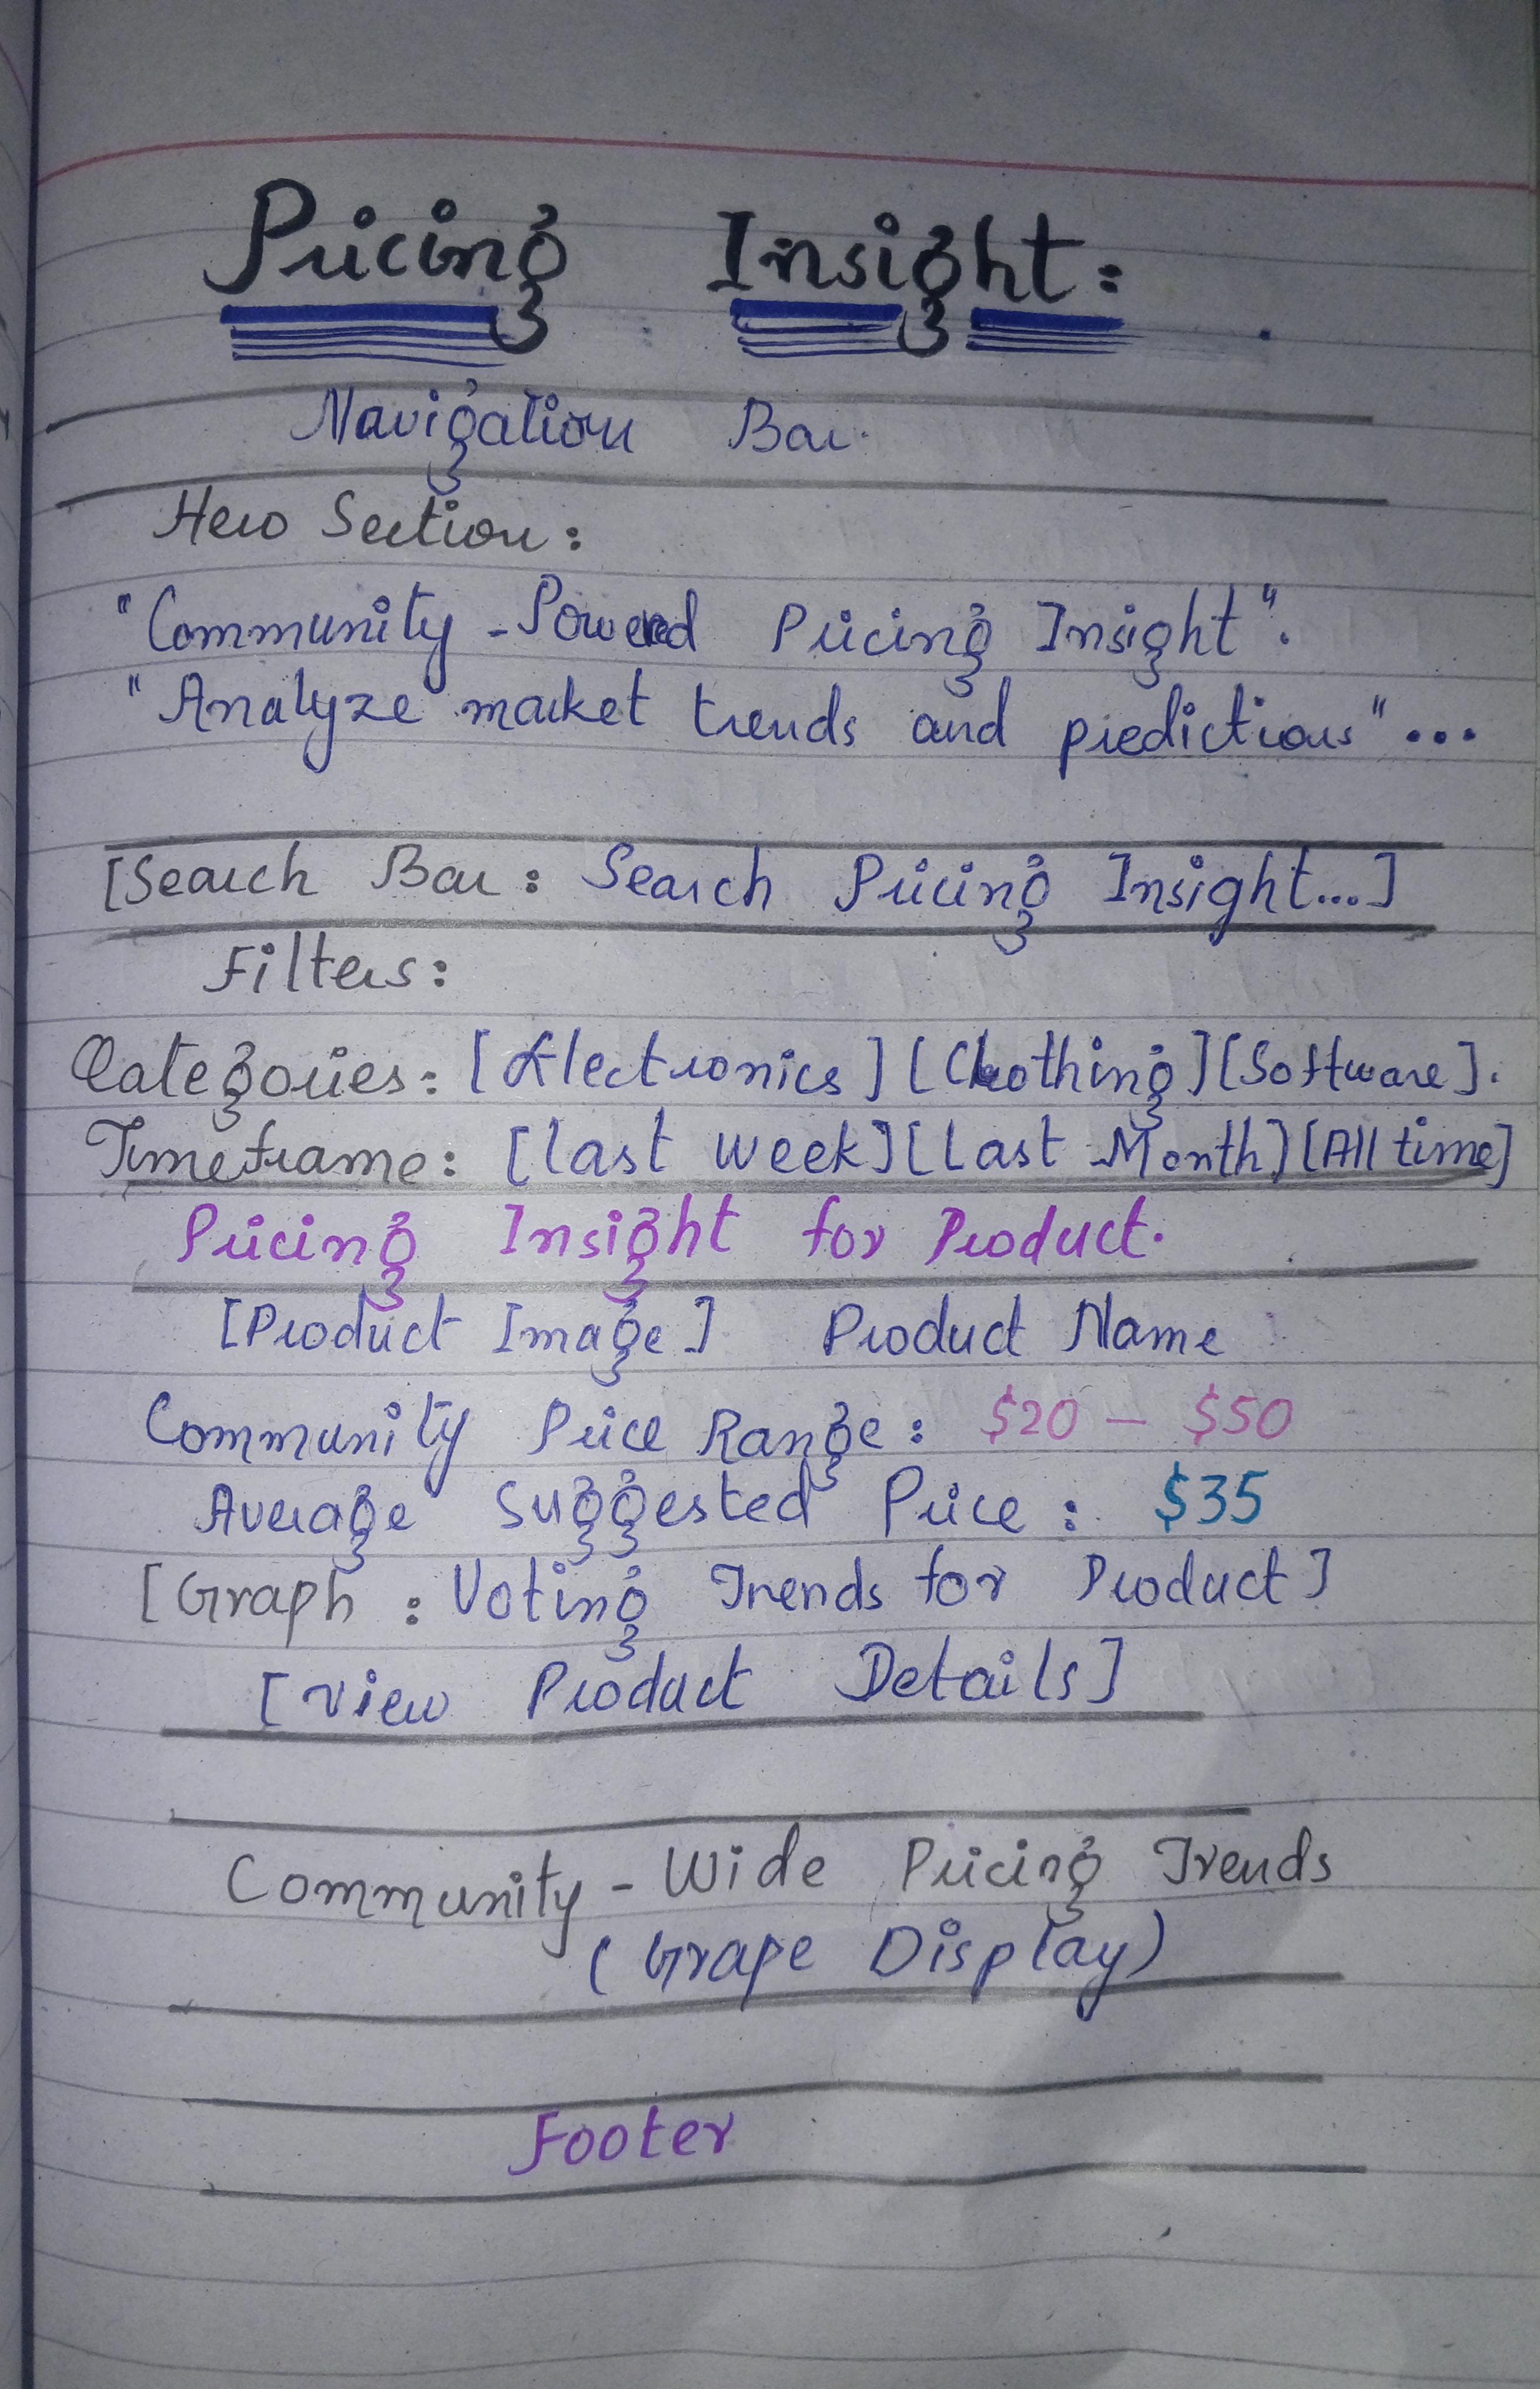 Pricing Insight:
Navigation Bar.
Hero Section:
"Community-Powered Pricing Insight".
"Analyze market trends and predictions"...
[Search Bar: Search Pricing Insight...]
Filters:
Categories: [Electronics] [Clothing] [Software].
Timeframe: [last week] [Last Month] [All time]
Pricing Insight for Product.
[Product Image] Product Name
Community Price Range: $20 - $50
Average Suggested Price: $35
[Graph: Voting Trends for Product]
[View Product Details]
Community-Wide Pricing Trends
(Grape Display)
Footer